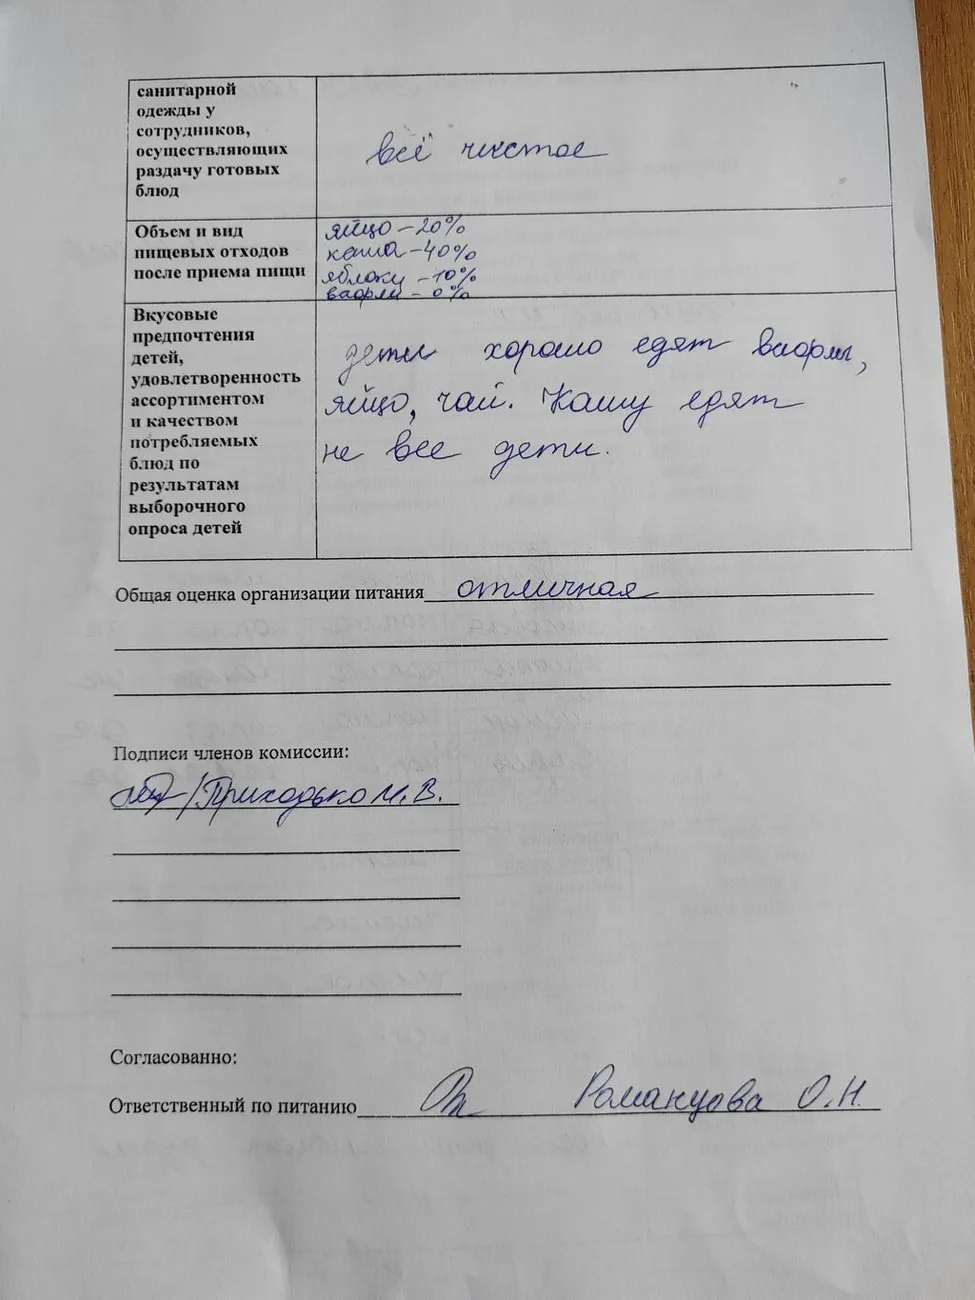 санитарной
одежды у
сотрудников,
осуществляющих
раздачу готовых
блюд
всё чистое
Объем и вид
пищевых отходов
после приема пищи
яйцо - 20%
каша - 40%
яблоки - 10%
вафли - 0%
Вкусовые
предпочтения
детей,
удовлетворенность
ассортиментом
и качеством
потребляемых
блюд по
результатам
выборочного
опроса детей
дети хорошо едят вафли,
яйцо, чай. Кашу едят
не все дети.
Общая оценка организации питания отличная
Подписи членов комиссии:
/Приходько М. В.
Согласованно:
Ответственный по питанию Романцова О.Н.